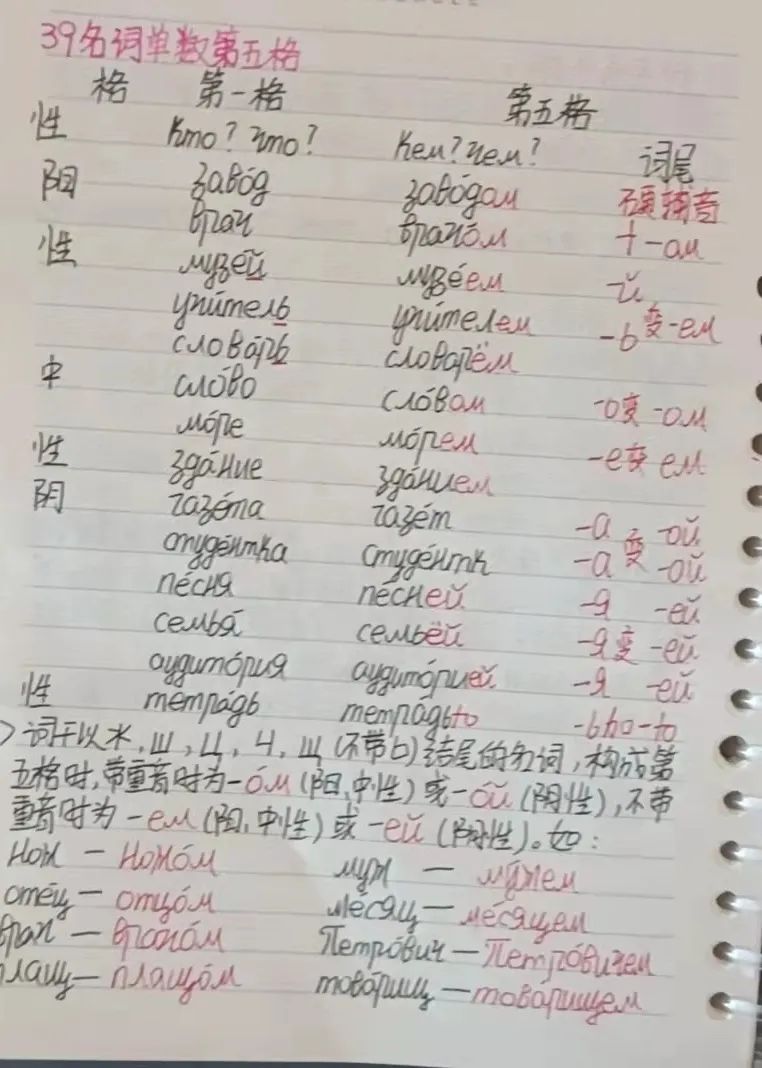 39名词单数第五格
格 第一格 第五格
性 Кто? Что? Кем? Чем? 词尾
阳 завόд завόдом 硬辅音
врач врачόм +-ом
性 музей музéем -й
учи́тель учи́телем -ь变-ем
словáрь словарём
中 слόво слόвом -о变-ом
мόре мόрем -е变ем
性 здáние здáнием
阴 газéта газéт -а变-ой
студéнтка студéнтк -а -ой
пéсня пéсней -я -ей
семья́ семьёй -я变-ей
аудитόрия аудитόрией -я -ей
性 тетрáдь тетрáдью -ь加-ю
>词干以ж,ш,ц,ч,щ(不带ь)结尾的名词,构成第
五格时,带重音时为-όм(阳、中性)或-όй(阴性),不带
重音时为-ем(阳、中性)或-ей(阴性)。如:
Нож — Ножόм муж — му́жем
отéц — отцόм мéсяц — мéсяцем
врач — врачόм Петрόвич — Петрόвичем
плащ — плащόм товáрищ — товáрищем